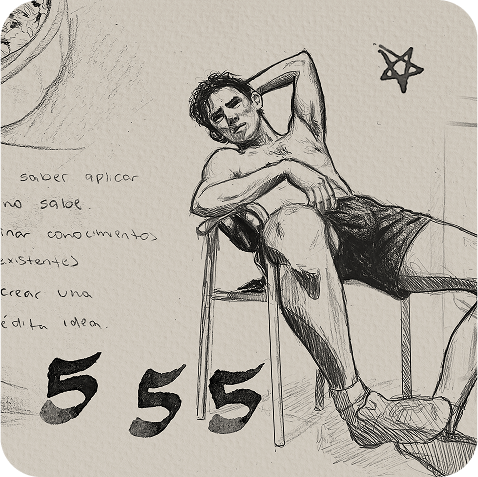 saber aplicar
no sabe.
inar conocimientos
existente)
crear una
édita idea.
5 5 5